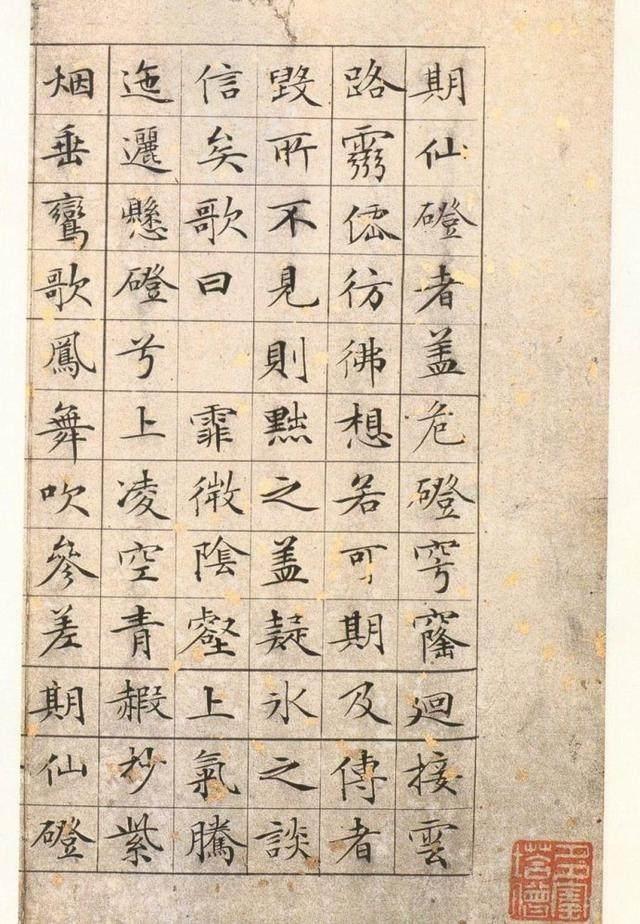 期仙磴者盖危磴穹窿迴接雲
路靈僊彷彿想若可期及傳者
毀所不見則黜之盖疑氷之談
信矣歌曰 霏微陰壑上氣騰
迤邐懸磴兮上凌空青赮杪紫
烟垂鸞歌鳳舞吹參差期仙磴